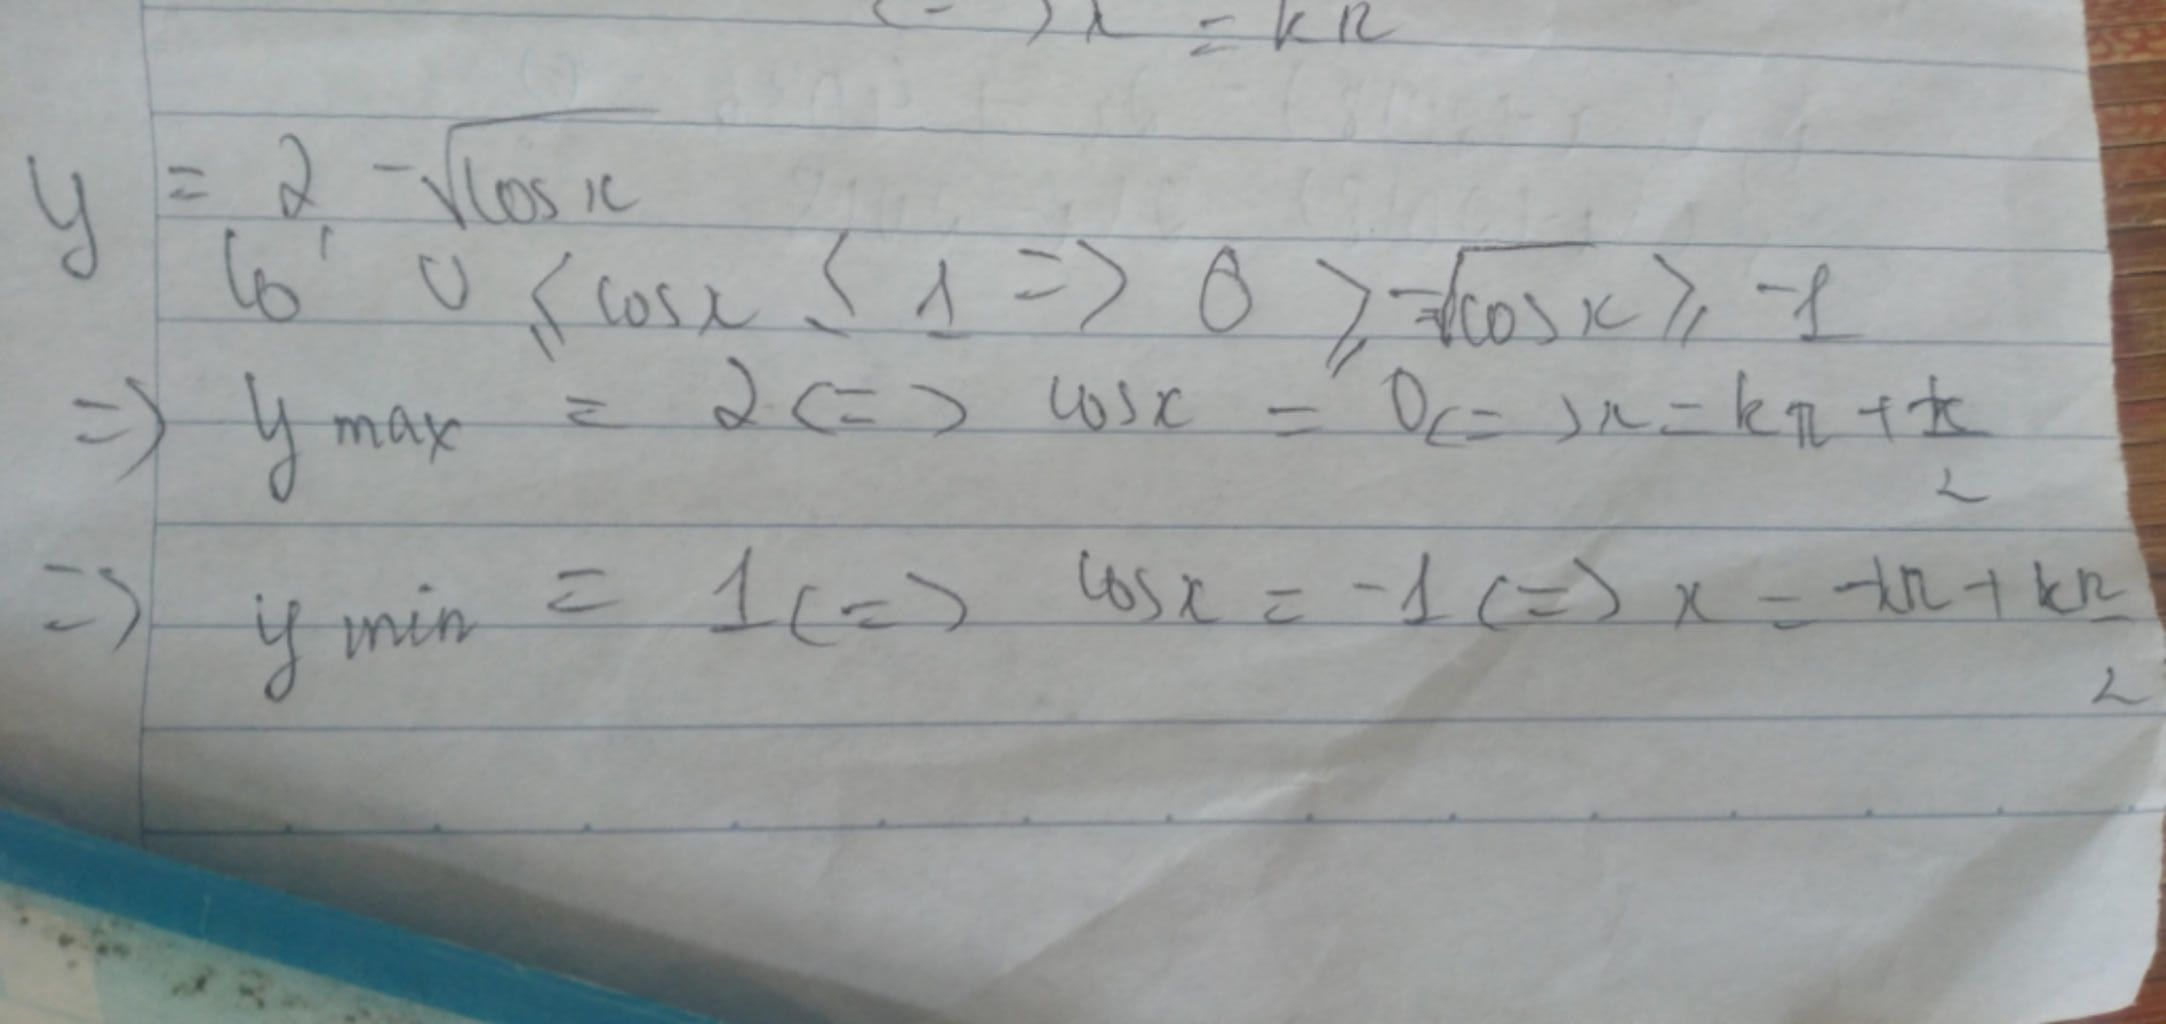 (=) x = kπ
y = 2 - √cosx
Có 0 ≤ cosx ≤ 1 => 0 ≥ -√cosx ≥ -1
=> y max = 2 (=) cosx = 0 (=) x = kπ + π/2
=> y min = 1 (=) cosx = -1 (=) x = -kπ + kπ/2